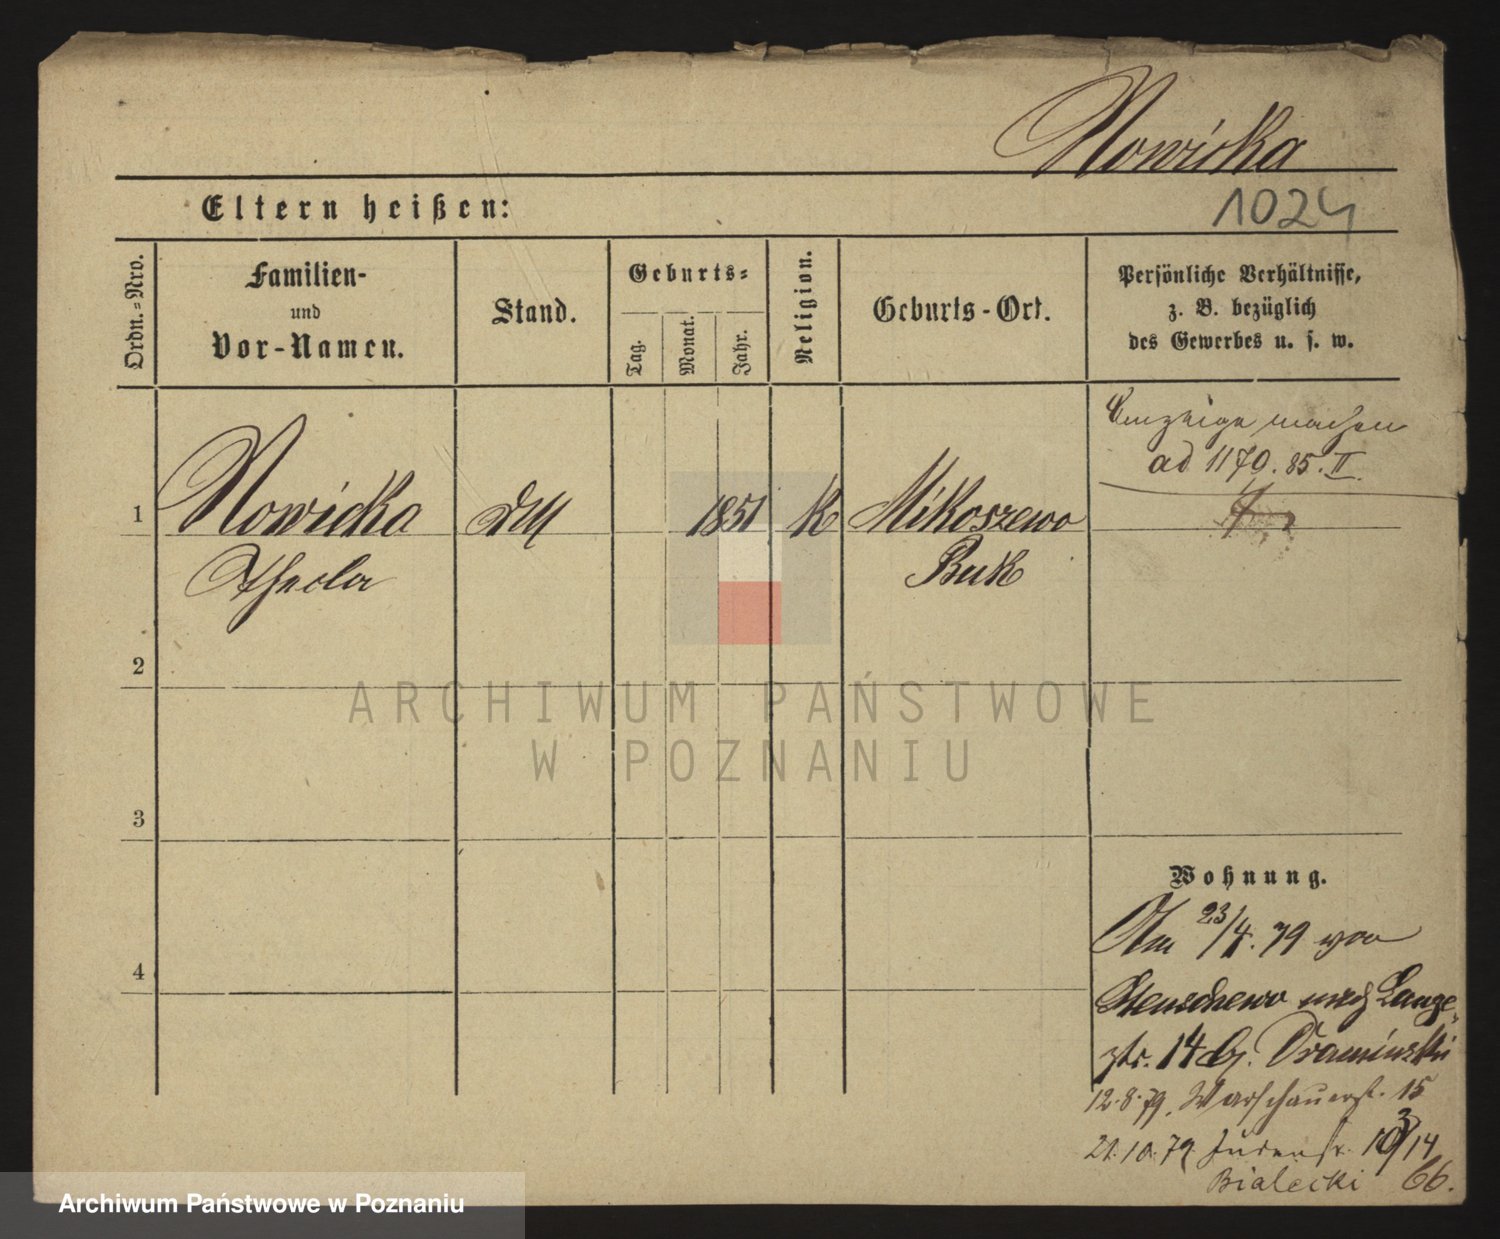 Nowicka
Eltern heißen:
1024
Ordn.=Nro.
Familien-
und
Vor-Namen.
Stand.
Geburts=
Tag.
Monat.
Jahr.
Religion.
Geburts-Ort.
Persönliche Verhältnisse,
z. B. bezüglich
des Gewerbes u. s. w.
Anzeige machen
ad 1170. 85. II.
1
Nowicka
1851
K
Mikoszewo
Thecla
Buk
2
ARCHIWUM PAŃSTWOWE
W POZNANIU
3
Wohnung.
Am 23/4. 79 von
4
Stenschewo nach Lange-
str. 14 b/. Draminski
12.8.79. Warschauerst. 15
21.10.79 Judenstr. 14
Bialecki 66.
Archiwum Państwowe w Poznaniu